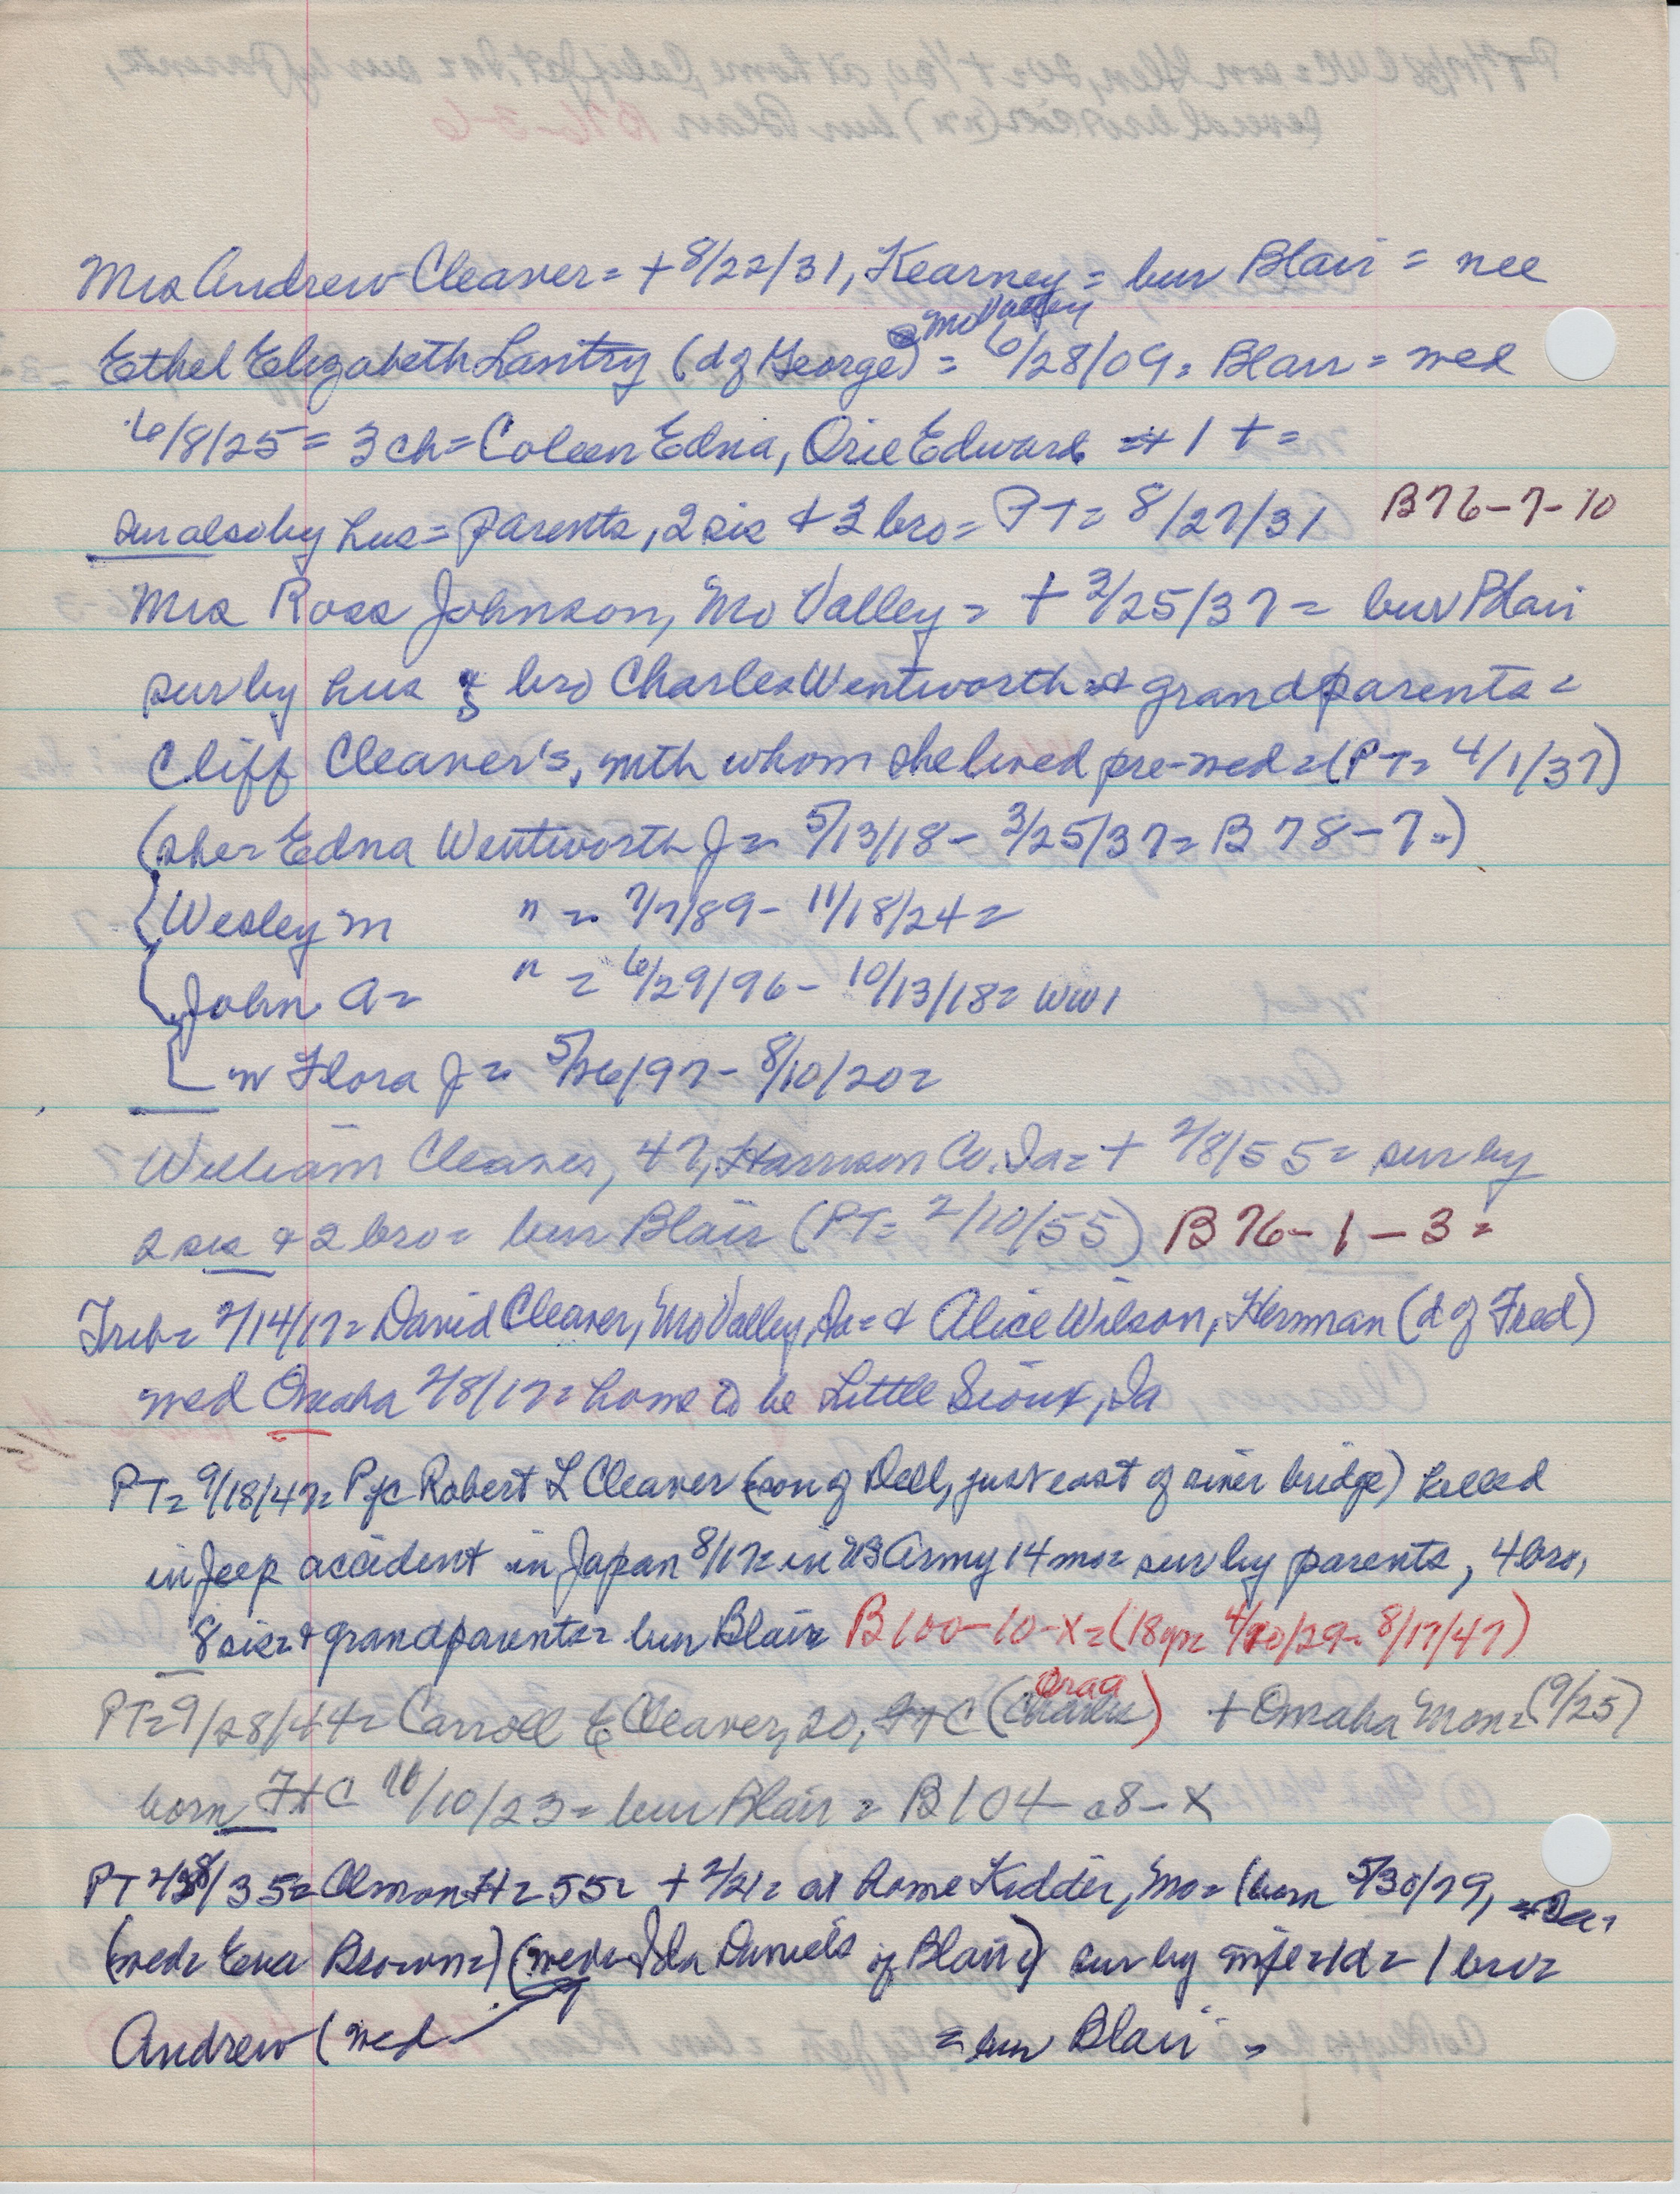 Mrs Andrew Cleaver = + 8/22/31, Kearney = bur Blair = nee
Mo Valley
Ethel Elizabeth Lantry (d of George) = 6/28/09 = Blair = wed
6/8/25 = 3 ch = Coleen Edna, Orie Edward + 1 + =
sur also by hus = parents, 2 sis + 3 bro = PT = 8/27/31 B76-7-10
Mrs Ross Johnson, Mo Valley = + 3/25/37 = bur Blair
sur by hus & bro Charles Wentworth + grandparents =
Cliff Cleaver's, with whom she lived pre-wed = (PT = 4/1/37)
(she = Edna Wentworth J = 5/13/18 - 3/25/37 = B 78-7 =)
Wesley M " = 7/7/89 - 11/18/24 =
John A = " = 6/29/96 - 10/13/18 = WW1
w Flora J = 5/26/97 - 8/10/20 =
William Cleaver, 47, Harrison Co. Ia = + 2/8/55 = sur by
2 sis + 2 bro = bur Blair (PT = 2/10/55) B76-1-3 =
Trib = 2/14/17 = David Cleaver, Mo Valley, Ia = + Alice Wilson, Herman (d of Fred)
wed Omaha 2/8/17 = home to be Little Sioux, Ia
PT = 9/18/47 = Pfc Robert L Cleaver (son of Dell, just east of river bridge) killed
in Jeep accident in Japan 8/17 = in US Army 14 mo = sur by parents, 4 bro,
8 sis = + grandparents = bur Blair B100-10-X = (18 yr = 4/10/29 - 8/17/47)
Oraa
PT = 9/28/44 = Carroll E Cleaver, 20, Ft C (Charles) + Omaha Mon = (9/25)
born Ft C 10/23 = bur Blair = B104-8-X
PT 2/28/35 = Almon H = 55 = + 2/21 = at home Kidder, Mo = (born 5/30/79, Ia =
(wed = Eva Brown =) (wed = Ida Daniels of Blair) sur by wife = 1 d = 1 bro =
Andrew (wed = bur Blair =